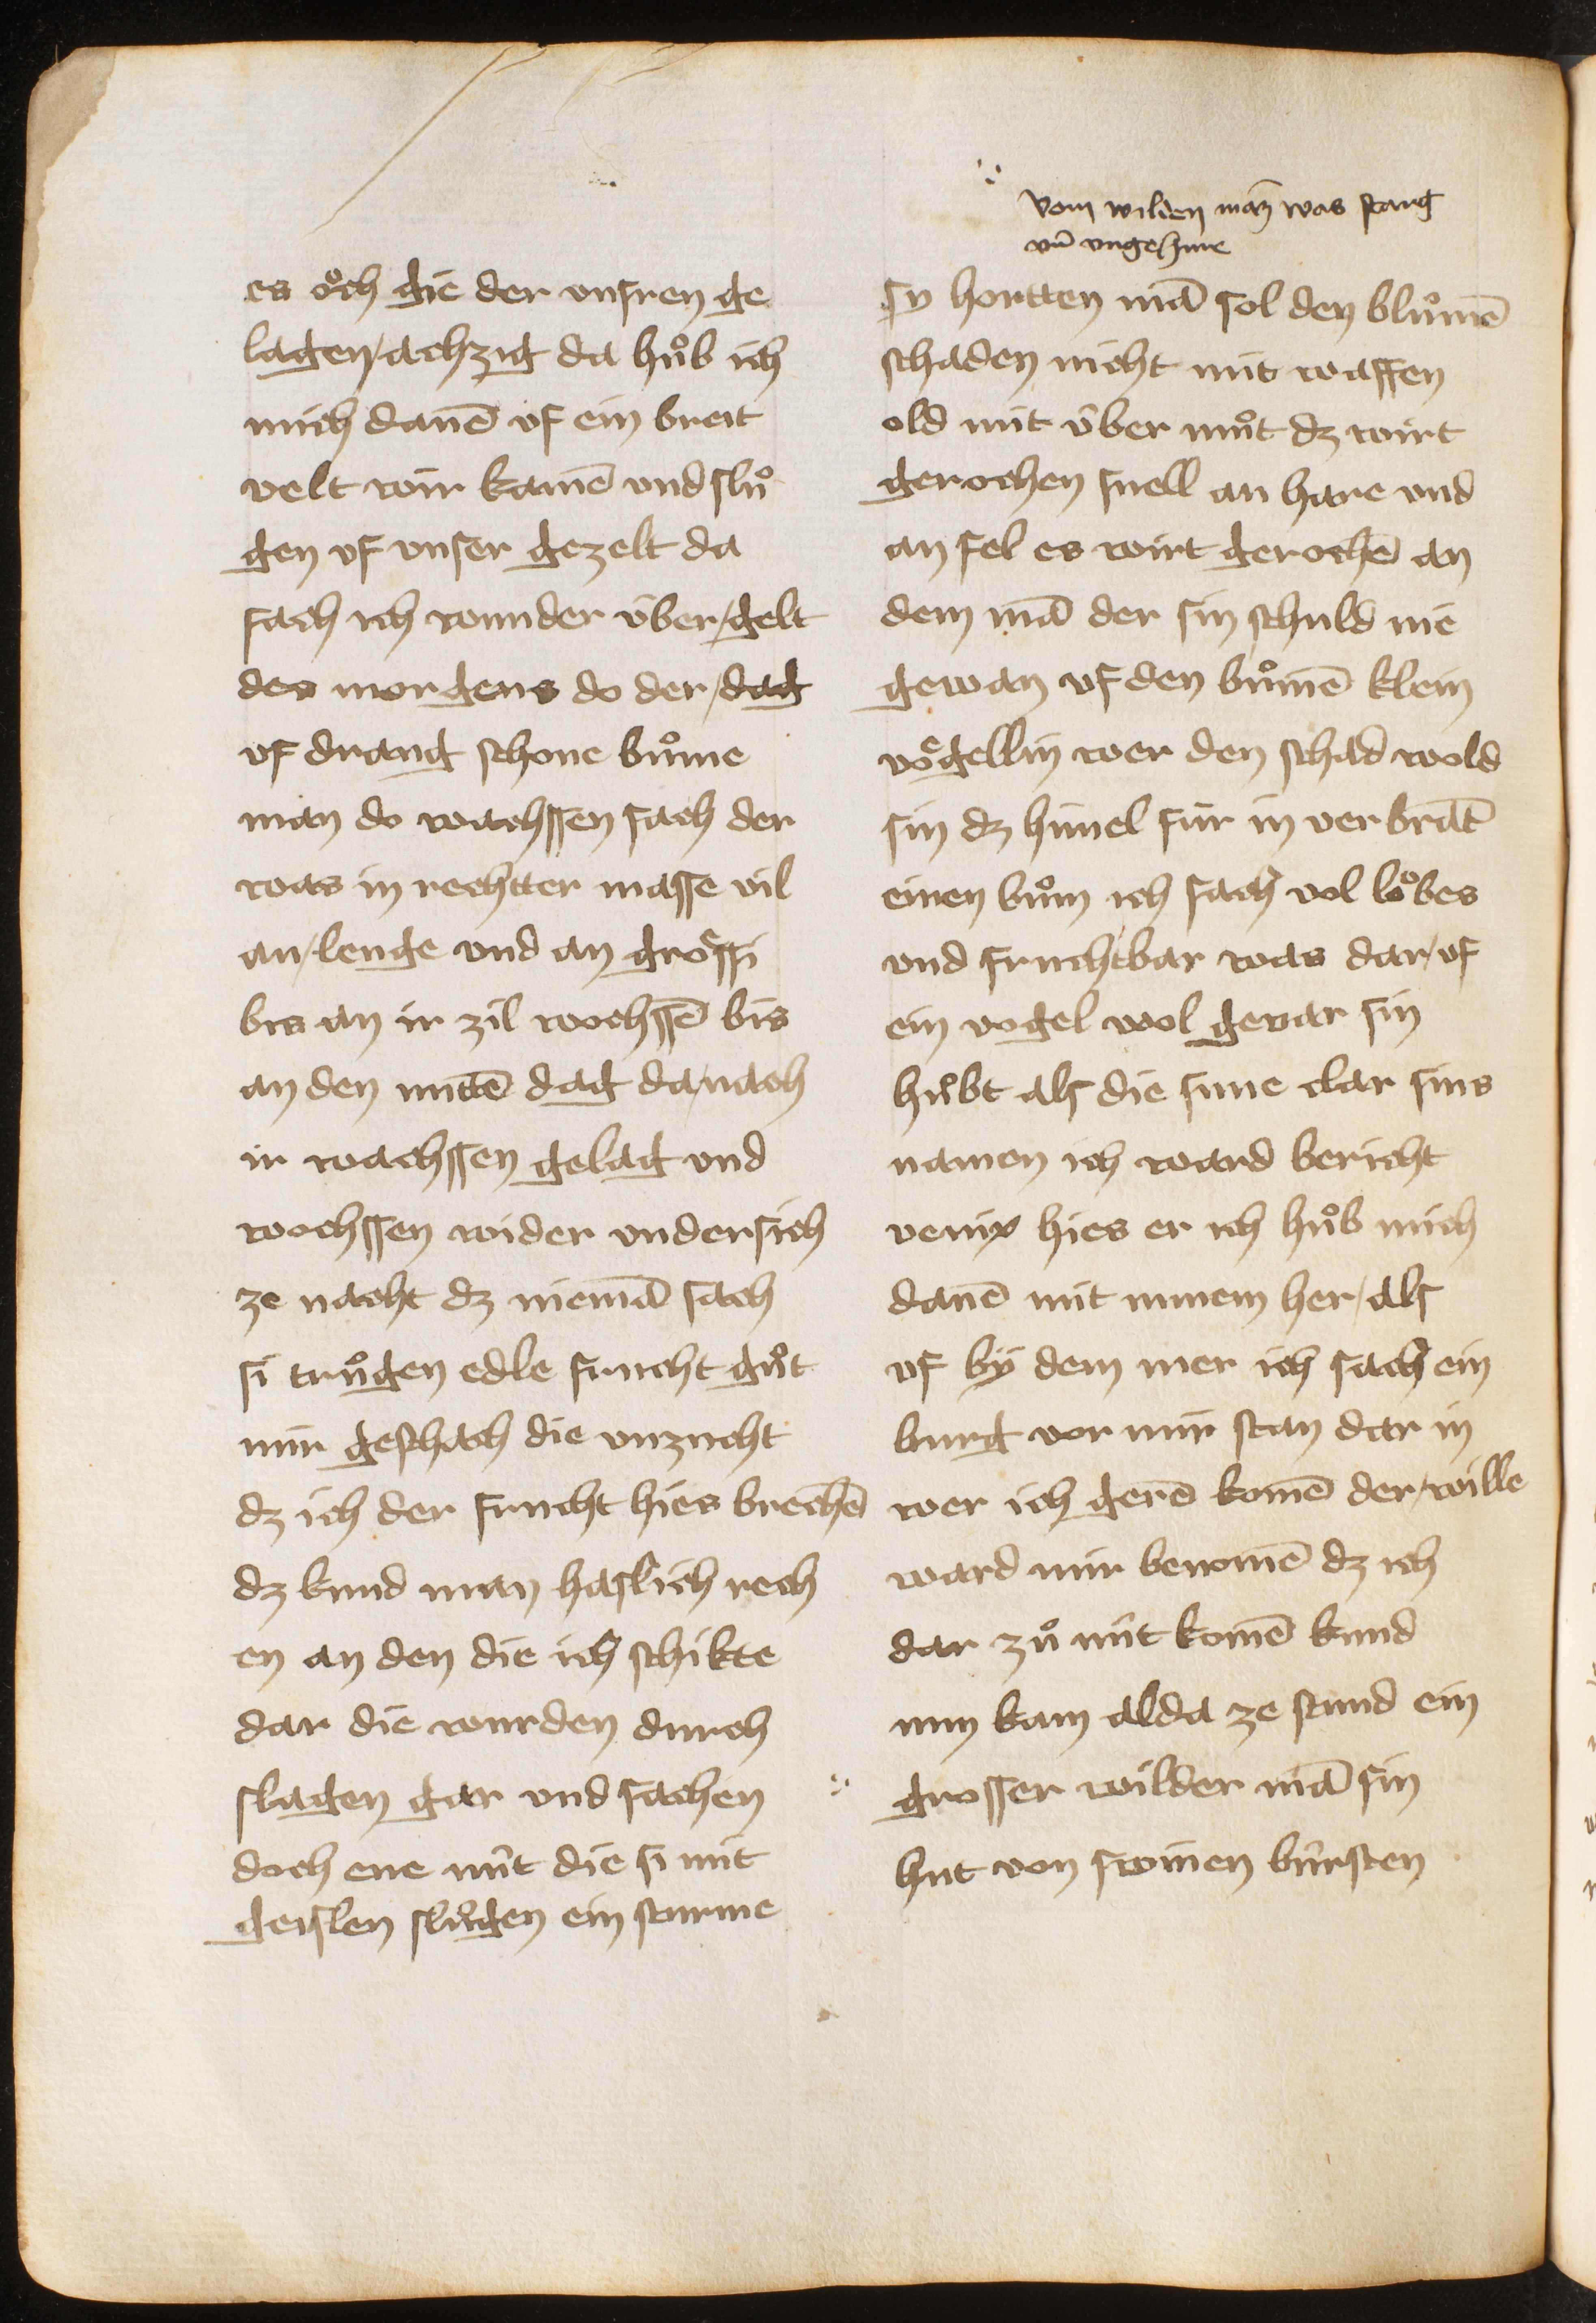 es oͮch gie der vnsren ge
lagen achzig da huͦb ich
mich danē vf ein breit
velt wir kamē vnd sluͦ
gen vf vnser gezelt da
sach ich wunder über gelt
des morgens do der dag
vf drang schone buͦme
man do wachssen sach der
was in rechtter masse vil
an lenge vnd an groͤssi
bis an ir zil wochssē bis
an den mittē dag da nach
ir wachssen gelag vnd
wochssen wider vndersich
ze nacht dz niemā sach
si truͦgen edle frucht guͦt
mir geschach die vnzucht
dz ich der frucht hies brechē
dz kund man haslich rech
en an den die ich schikte
dar die wurden durch
slagen gar vnd sachen
doch ene nüt die si mit
geislen sluͦgen ein starme
vom wilden man was stang
vn̄ vngehüre
sy hortten mā sol den bluͦmē
schaden nicht mit waffen
old mit über muͦt dz wirt
gerochen snell an hare vnd
an fel es wirt gerochē an
dem mā der sin schuld nie
gewan vf den buͦmē klein
voͤgellin wer den schad wold
sin dz himel für in ver brāt
einen buͦm ich sach vol loͮbes
vnd fruchtbar was dar vf
ein vogel wol gevar sin
huͦbt als die sune clar sins
namen ich ward bericht
venix hies er ich huͦb mich
danē mit minem her als
vf by dem mer ich sach ein
burg vor mir stan dar in
wer ich gerē komē der wille
ward mir benomē dz ich
dar zuͦ nüt komē kund
nun kam alda ze stund ein
grosser wilder mā sin
hut von swinen bürsten